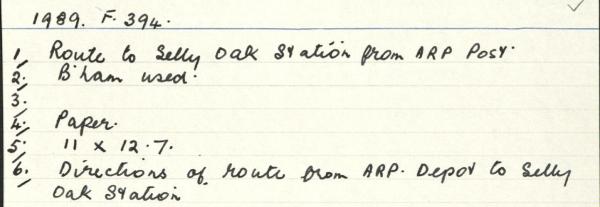 1989. F. 394.
1, Route to Selly Oak Station from ARP Post.
2. B'ham used.
3.
4. Paper.
5. 11 x 12.7.
6. Directions of route from ARP. Depot to Selly
Oak Station